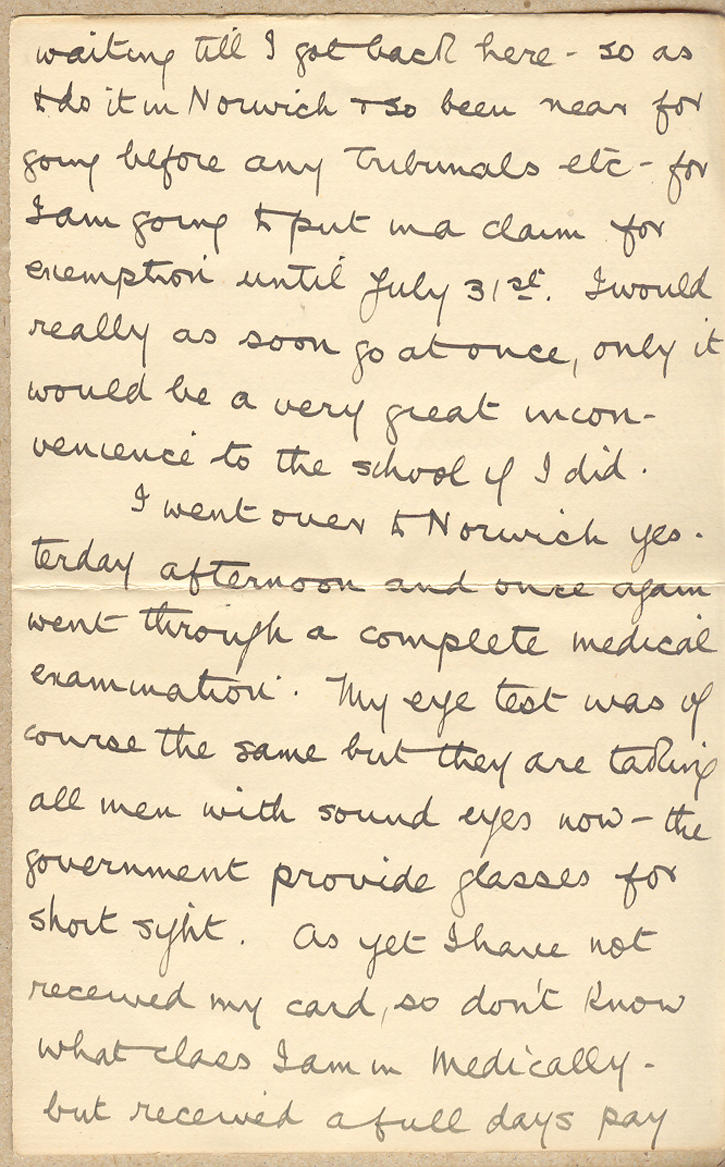 waiting till I got back here - so as
to do it in Norwich & so been near for
going before any Tribunals etc - for
I am going to put in a claim for
exemption until July 31st. I would
really as soon go at once, only it
would be a very great incon-
venience to the school if I did.
I went over to Norwich yes-
terday afternoon and once again
went through a complete medical
examination. My eye test was of
course the same but they are taking
all men with sound eyes now - the
government provide glasses for
short sight. As yet I have not
received my card, so don't know
what class I am in Medically -
but received a full days pay